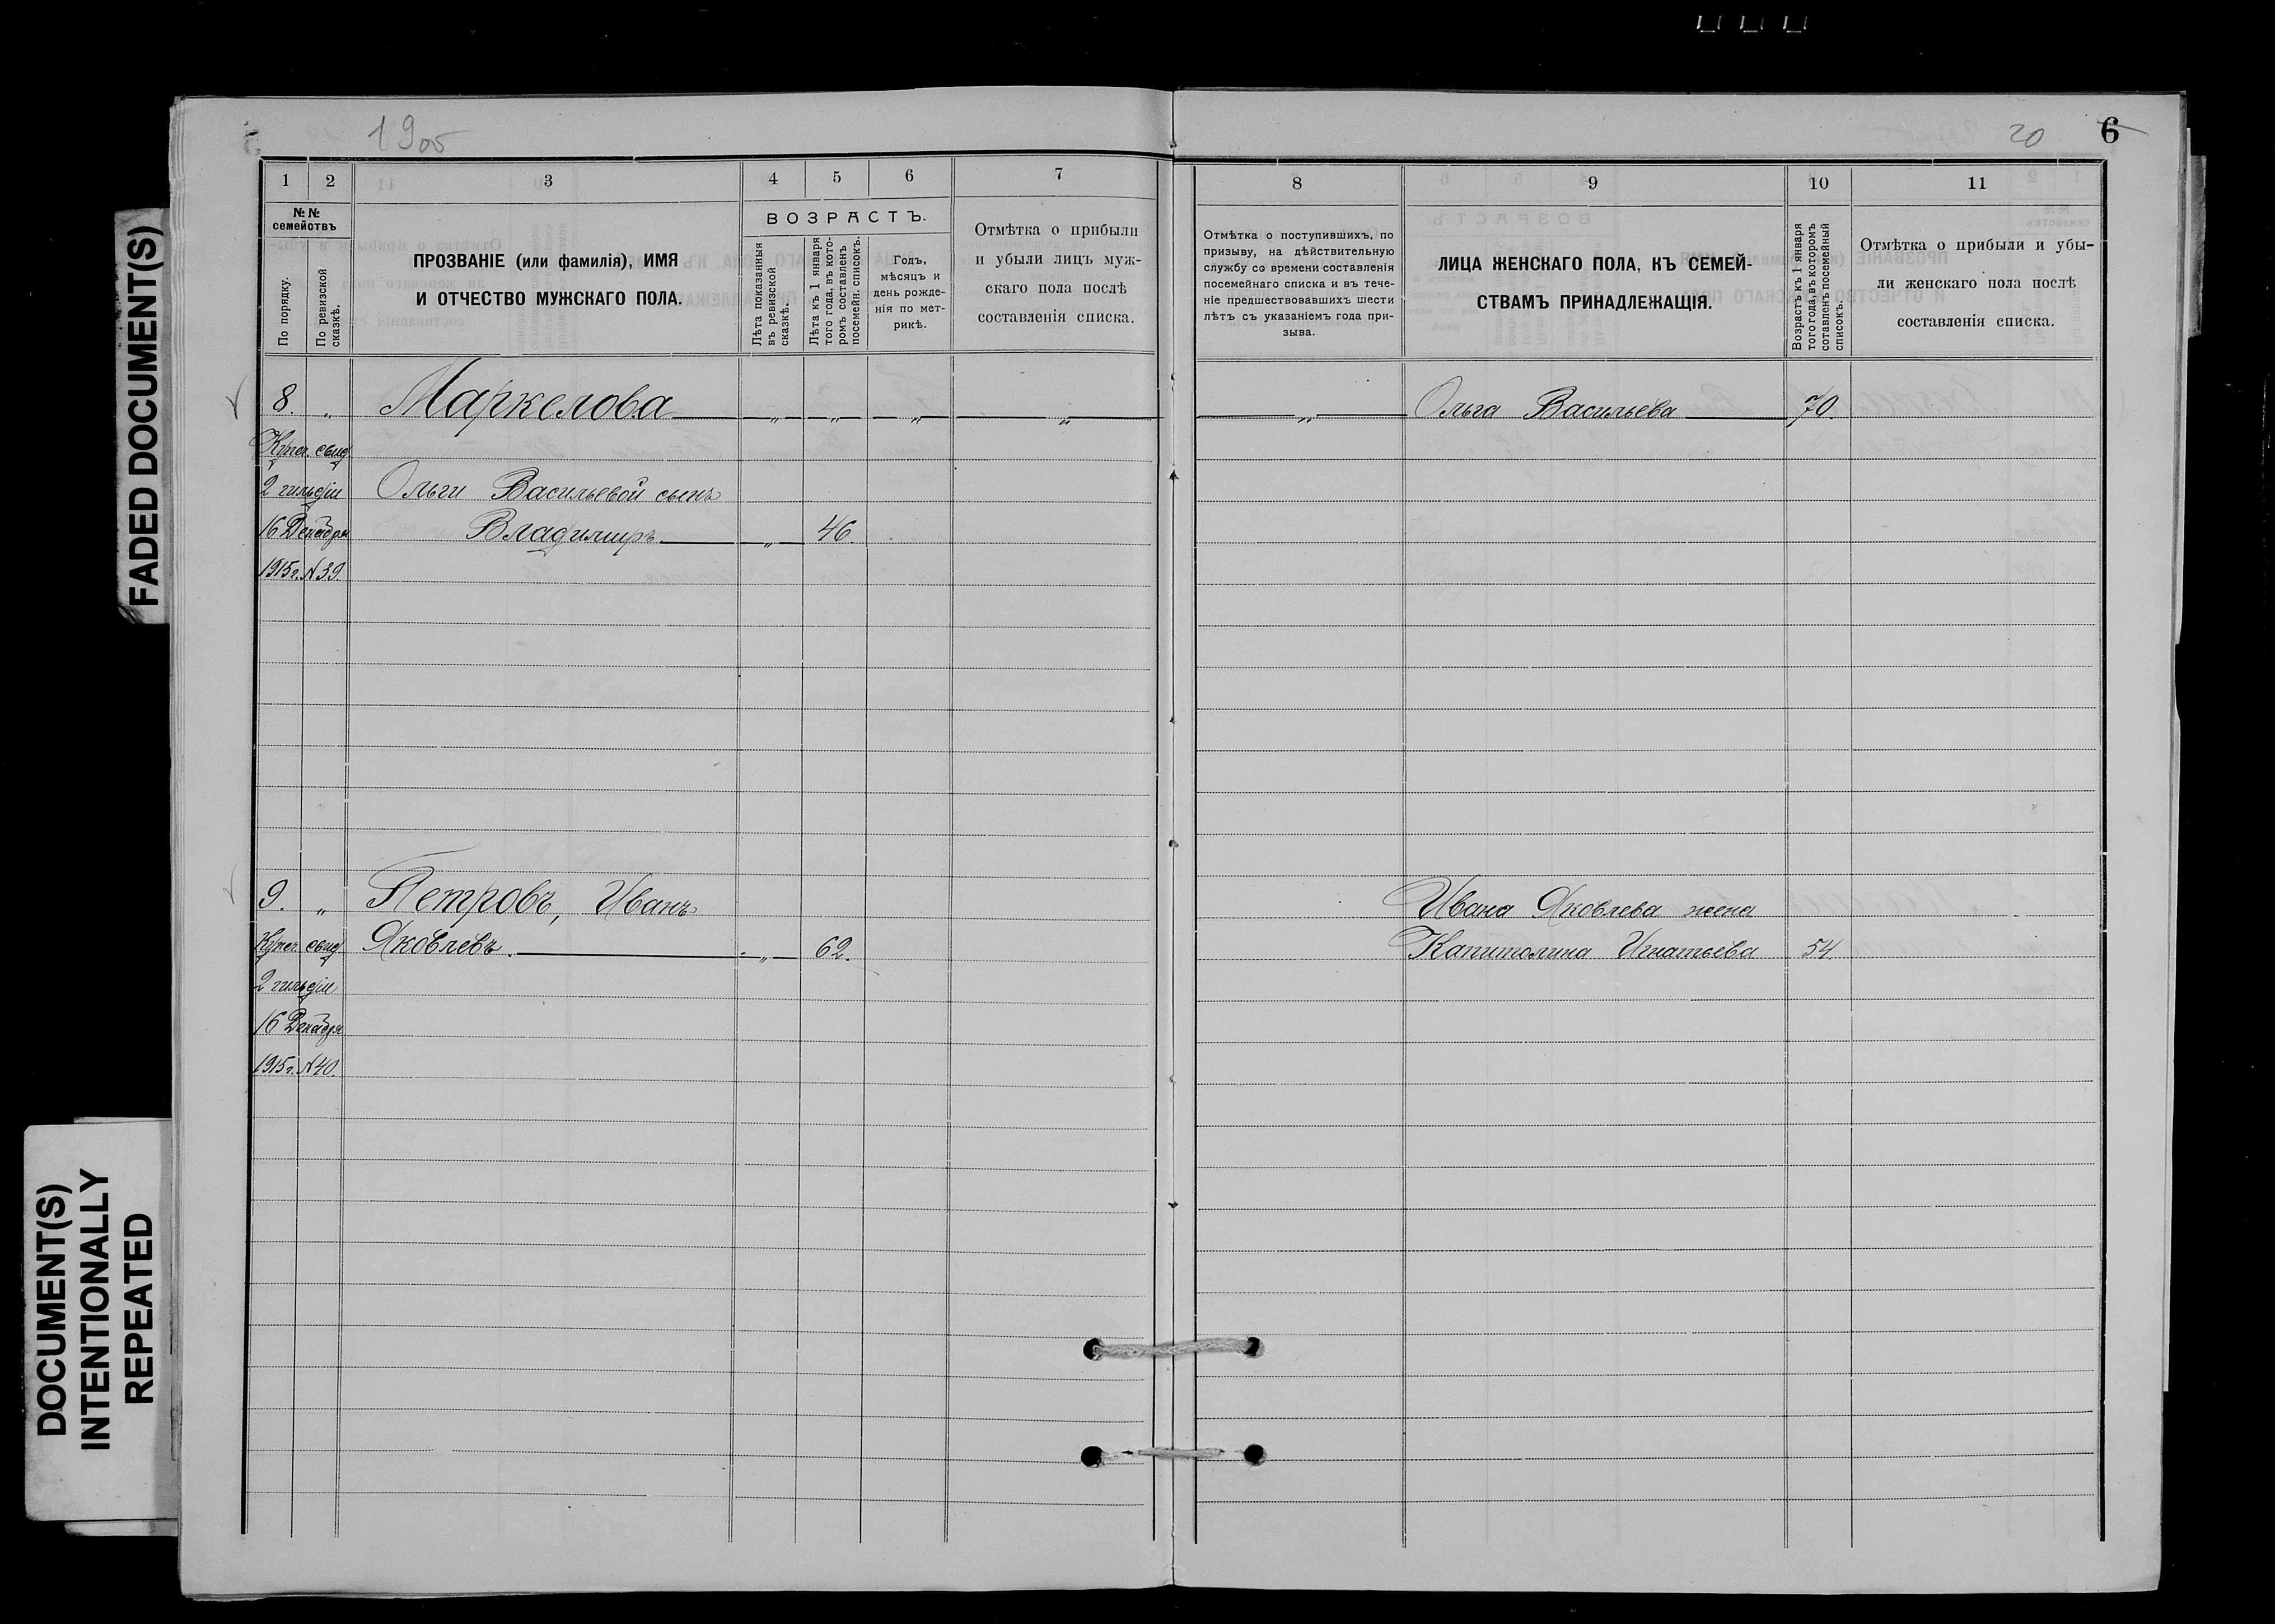 FADED DOCUMENT(S)
DOCUMENT(S)
INTENTIONALLY
REPEATED
1905
20
6
1
2
3
4
5
6
7
№№
семействъ
По порядку.
По ревизской
сказкѣ.
ПРОЗВАНІЕ (или фамилія), ИМЯ
И ОТЧЕСТВО МУЖСКАГО ПОЛА.
ВОЗРАСТЪ.
Лѣта показанныя
въ ревизской
сказкѣ.
Лѣта къ 1 января
того года, въ кото-
ромъ составленъ
посемейн. списокъ.
Годъ,
мѣсяцъ и
день рожде-
нія по мет-
рикѣ.
Отмѣтка о прибыли
и убыли лицъ муж-
скаго пола послѣ
составленія списка.
8. „ Маркелова „ „ „ „
Купеч. свид.
2 гильдіи Ольги Васильевой сынъ
16 Декабря Владимиръ „ 46.
1915 г. № 39.
9. „ Петровъ, Иванъ
Купеч. свид. Яковлевъ. „ 62.
2 гильдіи
16 Декабря
1915 г. № 40.
8
9
10
11
Отмѣтка о поступившихъ, по
призыву, на дѣйствительную
службу со времени составленія
посемейнаго списка и въ тече-
ніе предшествовавшихъ шести
лѣтъ съ указаніемъ года при-
зыва.
ЛИЦА ЖЕНСКАГО ПОЛА, КЪ СЕМЕЙ-
СТВАМЪ ПРИНАДЛЕЖАЩІЯ.
Возрастъ къ 1 января
того года, въ которомъ
сотавленъ посемейный
списокъ.
Отмѣтка о прибыли и убы-
ли женскаго пола послѣ
составленія списка.
„ Ольга Васильева 70.
Ивана Яковлева жена
Капитолина Игнатьева 54.